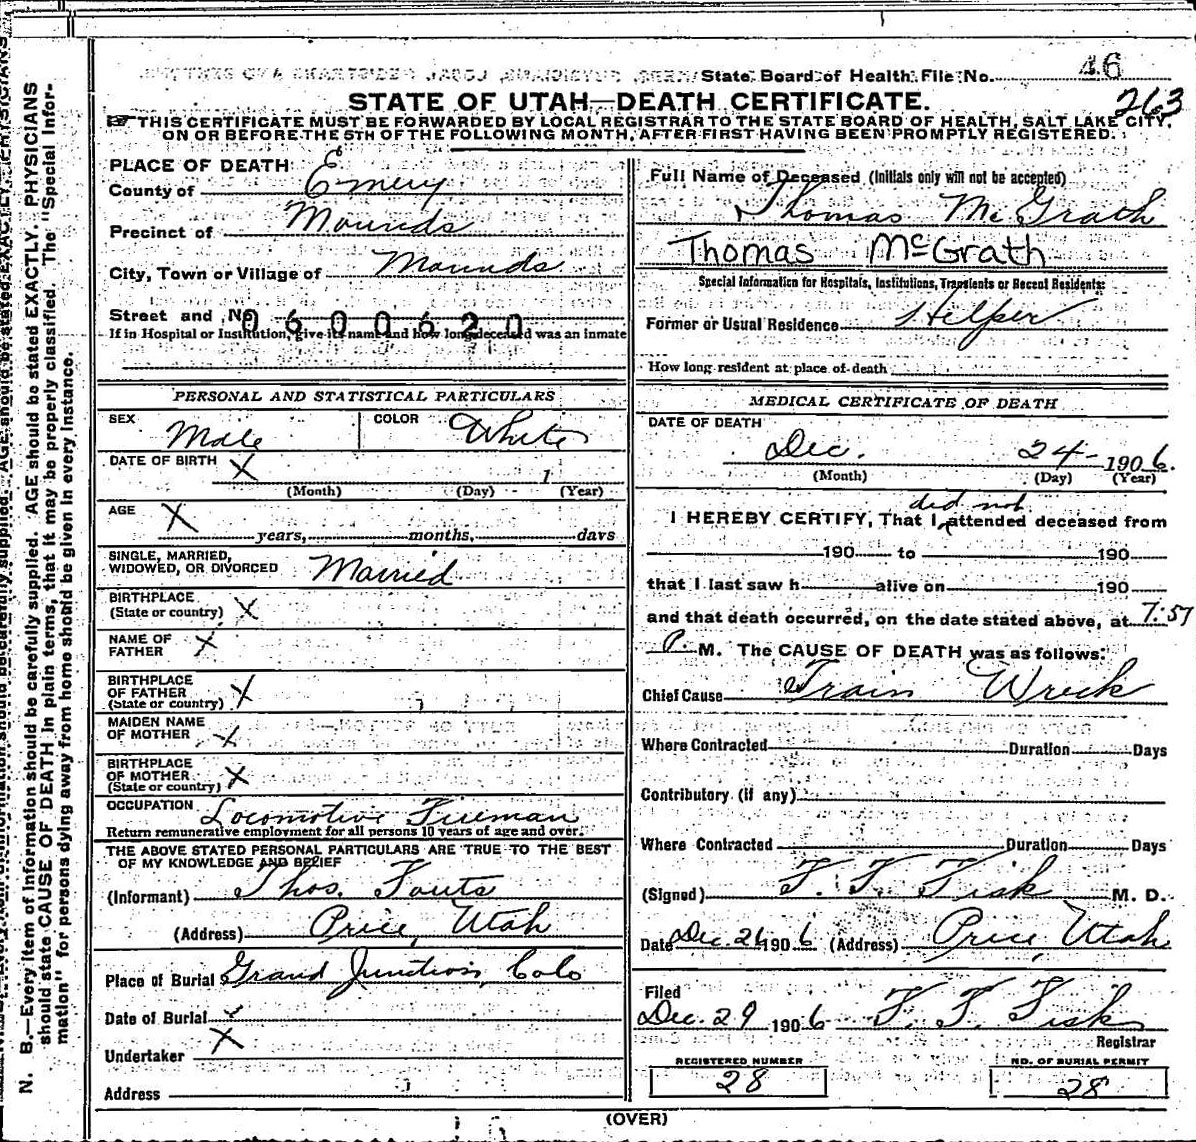 State Board of Health File No. 46
263
STATE OF UTAH—DEATH CERTIFICATE.
☞ THIS CERTIFICATE MUST BE FORWARDED BY LOCAL REGISTRAR TO THE STATE BOARD OF HEALTH, SALT LAKE CITY,
ON OR BEFORE THE 5TH OF THE FOLLOWING MONTH, AFTER FIRST HAVING BEEN PROMPTLY REGISTERED.
N. B.—Every item of information should be carefully supplied. AGE should be stated EXACTLY. PHYSICIANS
should state CAUSE OF DEATH in plain terms, that it may be properly classified. The "Special Infor-
mation" for persons dying away from home should be given in every instance.
PLACE OF DEATH
County of Emery
Precinct of Mounds
City, Town or Village of Mounds
Street and No. 0600620
If in Hospital or Institution, give its name and how long deceased was an inmate
PERSONAL AND STATISTICAL PARTICULARS
SEX Male COLOR White
DATE OF BIRTH X
1
(Month) (Day) (Year)
AGE X
years, months, days
SINGLE, MARRIED,
WIDOWED, OR DIVORCED Married
BIRTHPLACE
(State or country) X
NAME OF
FATHER X
BIRTHPLACE
OF FATHER
(State or country) X
MAIDEN NAME
OF MOTHER X
BIRTHPLACE
OF MOTHER
(State or country) X
OCCUPATION Locomotive Fireman
Return remunerative employment for all persons 10 years of age and over.
THE ABOVE STATED PERSONAL PARTICULARS ARE TRUE TO THE BEST
OF MY KNOWLEDGE AND BELIEF
(Informant) Thos. Fouts
(Address) Price, Utah
Place of Burial Grand Junction, Colo
Date of Burial X
Undertaker X
Address
Full Name of Deceased (Initials only will not be accepted)
Thomas McGrath
Thomas McGrath
Special Information for Hospitals, Institutions, Transients or Recent Residents:
Former or Usual Residence Helper
How long resident at place of death
MEDICAL CERTIFICATE OF DEATH
DATE OF DEATH
Dec. 24 1906.
(Month) (Day) (Year)
did not
I HEREBY CERTIFY, That I attended deceased from
190 to 190
that I last saw h alive on 190
and that death occurred, on the date stated above, at 7:57
P. M. The CAUSE OF DEATH was as follows:
Chief Cause Train Wreck
Where Contracted Duration Days
Contributory (if any)
Where Contracted Duration Days
(Signed) F. F. Fisk M. D.
Date Dec. 26 1906 (Address) Price, Utah
Filed
Dec. 29 1906 F. F. Fisk
Registrar
REGISTERED NUMBER
28
NO. OF BURIAL PERMIT
28
(OVER)